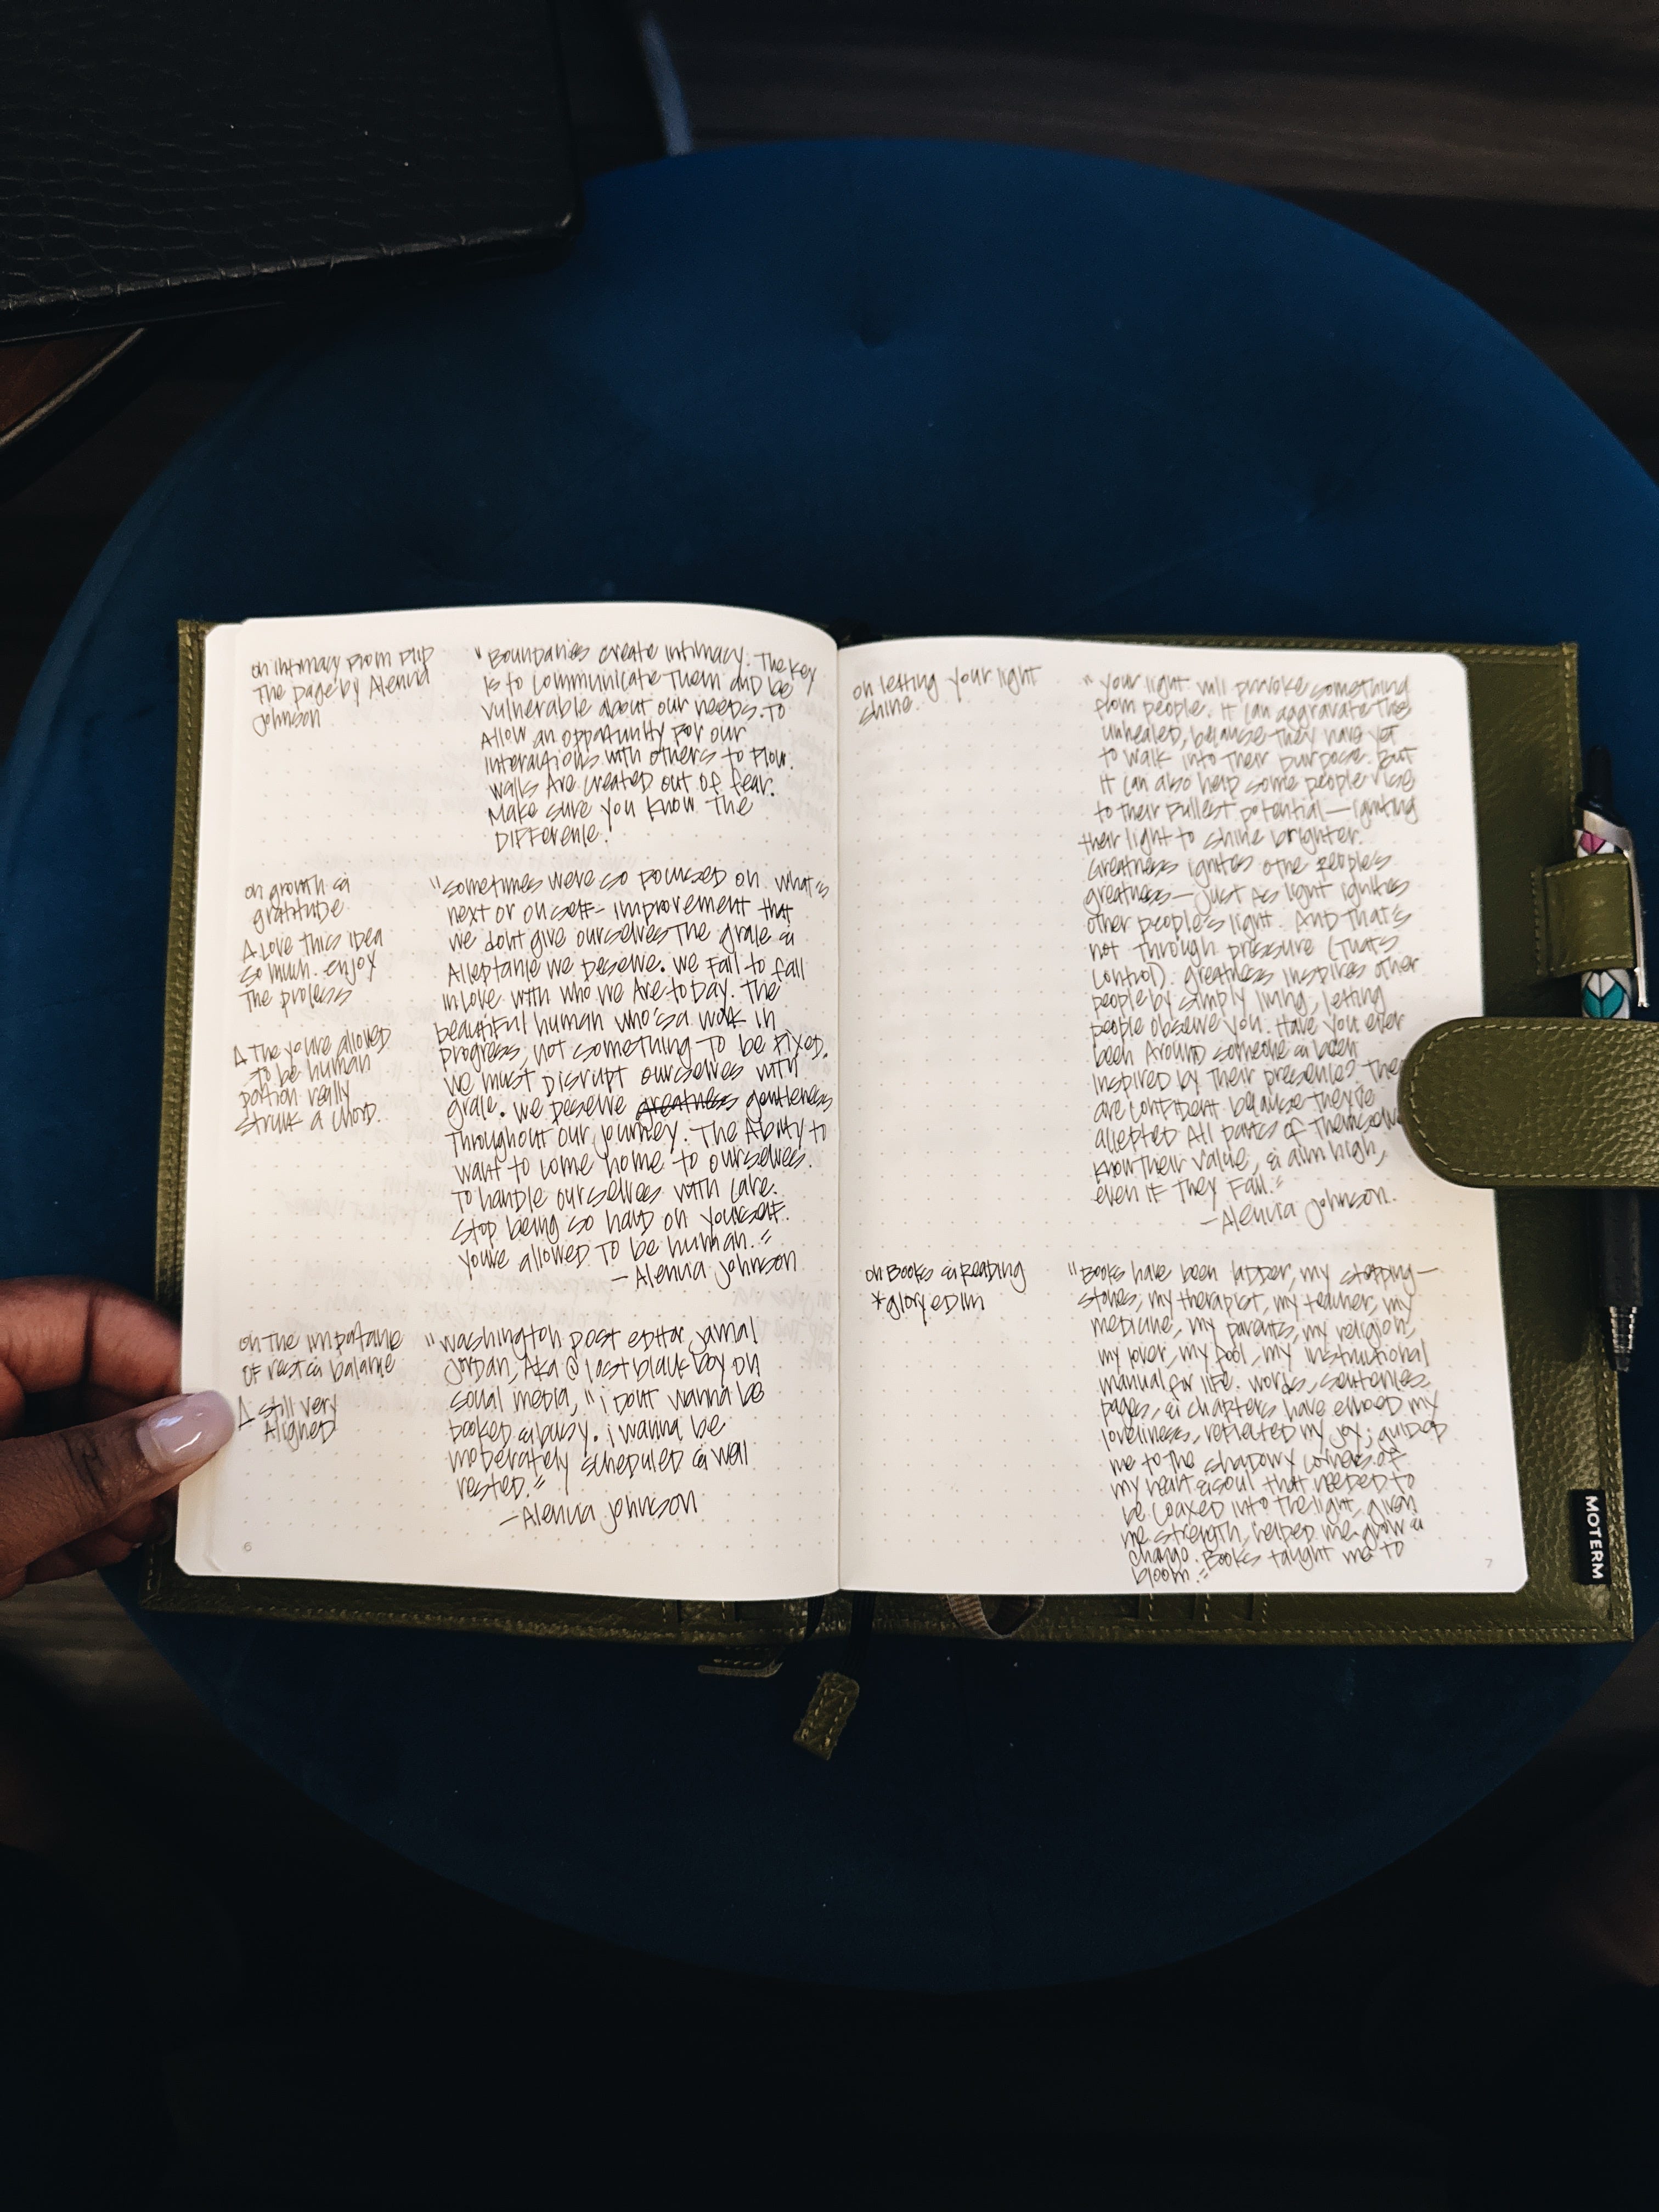 on intimacy from flip
the page by Alencia
Johnson
"Boundaries create intimacy. The key
is to communicate them and be
vulnerable about our needs. To
Allow an opportunity for our
interactions with others to flow.
walls Are created out of fear.
Make sure you know the
Difference."
on growth &
gratitude
Δ Love this idea
so much. enjoy
The process
Δ The you're allowed
to be human
portion really
struck a chord.
"sometimes we're so focused on what's
next or on self-improvement that
we don't give ourselves the grace &
Acceptance we deserve. We Fail to fall
in love with who we Are today. The
beautiful human who's a work in
progress, not something to be fixed.
We must disrupt ourselves with
grace. We deserve greatness gentleness
Throughout our journey. The Ability to
want to come home to ourselves.
To handle ourselves with care.
Stop being so hard on yourself.
You're allowed To be human."
— Alencia Johnson
on The importance
of rest & balance
Δ still very
Aligned
"Washington post editor Jamal
Jordan, Aka @lostblackboy on
social media, "i don't wanna be
booked & busy. i wanna be
moderately scheduled & well
rested."
— Alencia Johnson
6
on letting your light
shine.
"Your light will provoke something
from people. It can aggravate the
unhealed, because they have yet
to walk into their purpose. But
it can also help some people rise
to their fullest potential — igniting
their light to shine brighter.
Greatness ignites othe people's
greatness — just As light ignites
other people's light. And that's
not through pressure (that's
control). greatness inspires other
people by simply living, letting
people observe you. Have you ever
been Around someone & been
inspired by their presence? The
are confident because they've
accepted All parts of themselves
know their value, & aim high,
even if They Fail."
— Alencia Johnson.
on Books & Reading
*glory edim
"Books have been ladder, my stepping-
stones, my therapist, my teacher, my
medicine, my parents, my religion,
my lover, my fool, my instructional
manual for life. words, sentences,
pages, & chapters have echoed my
loneliness, reflected my joy; guided
me to the shadowy corners of
my heart & soul that needed to
be coaxed into the light, given
me strength, helped me grow &
change. Books taught me to
bloom."
7
MOTERM